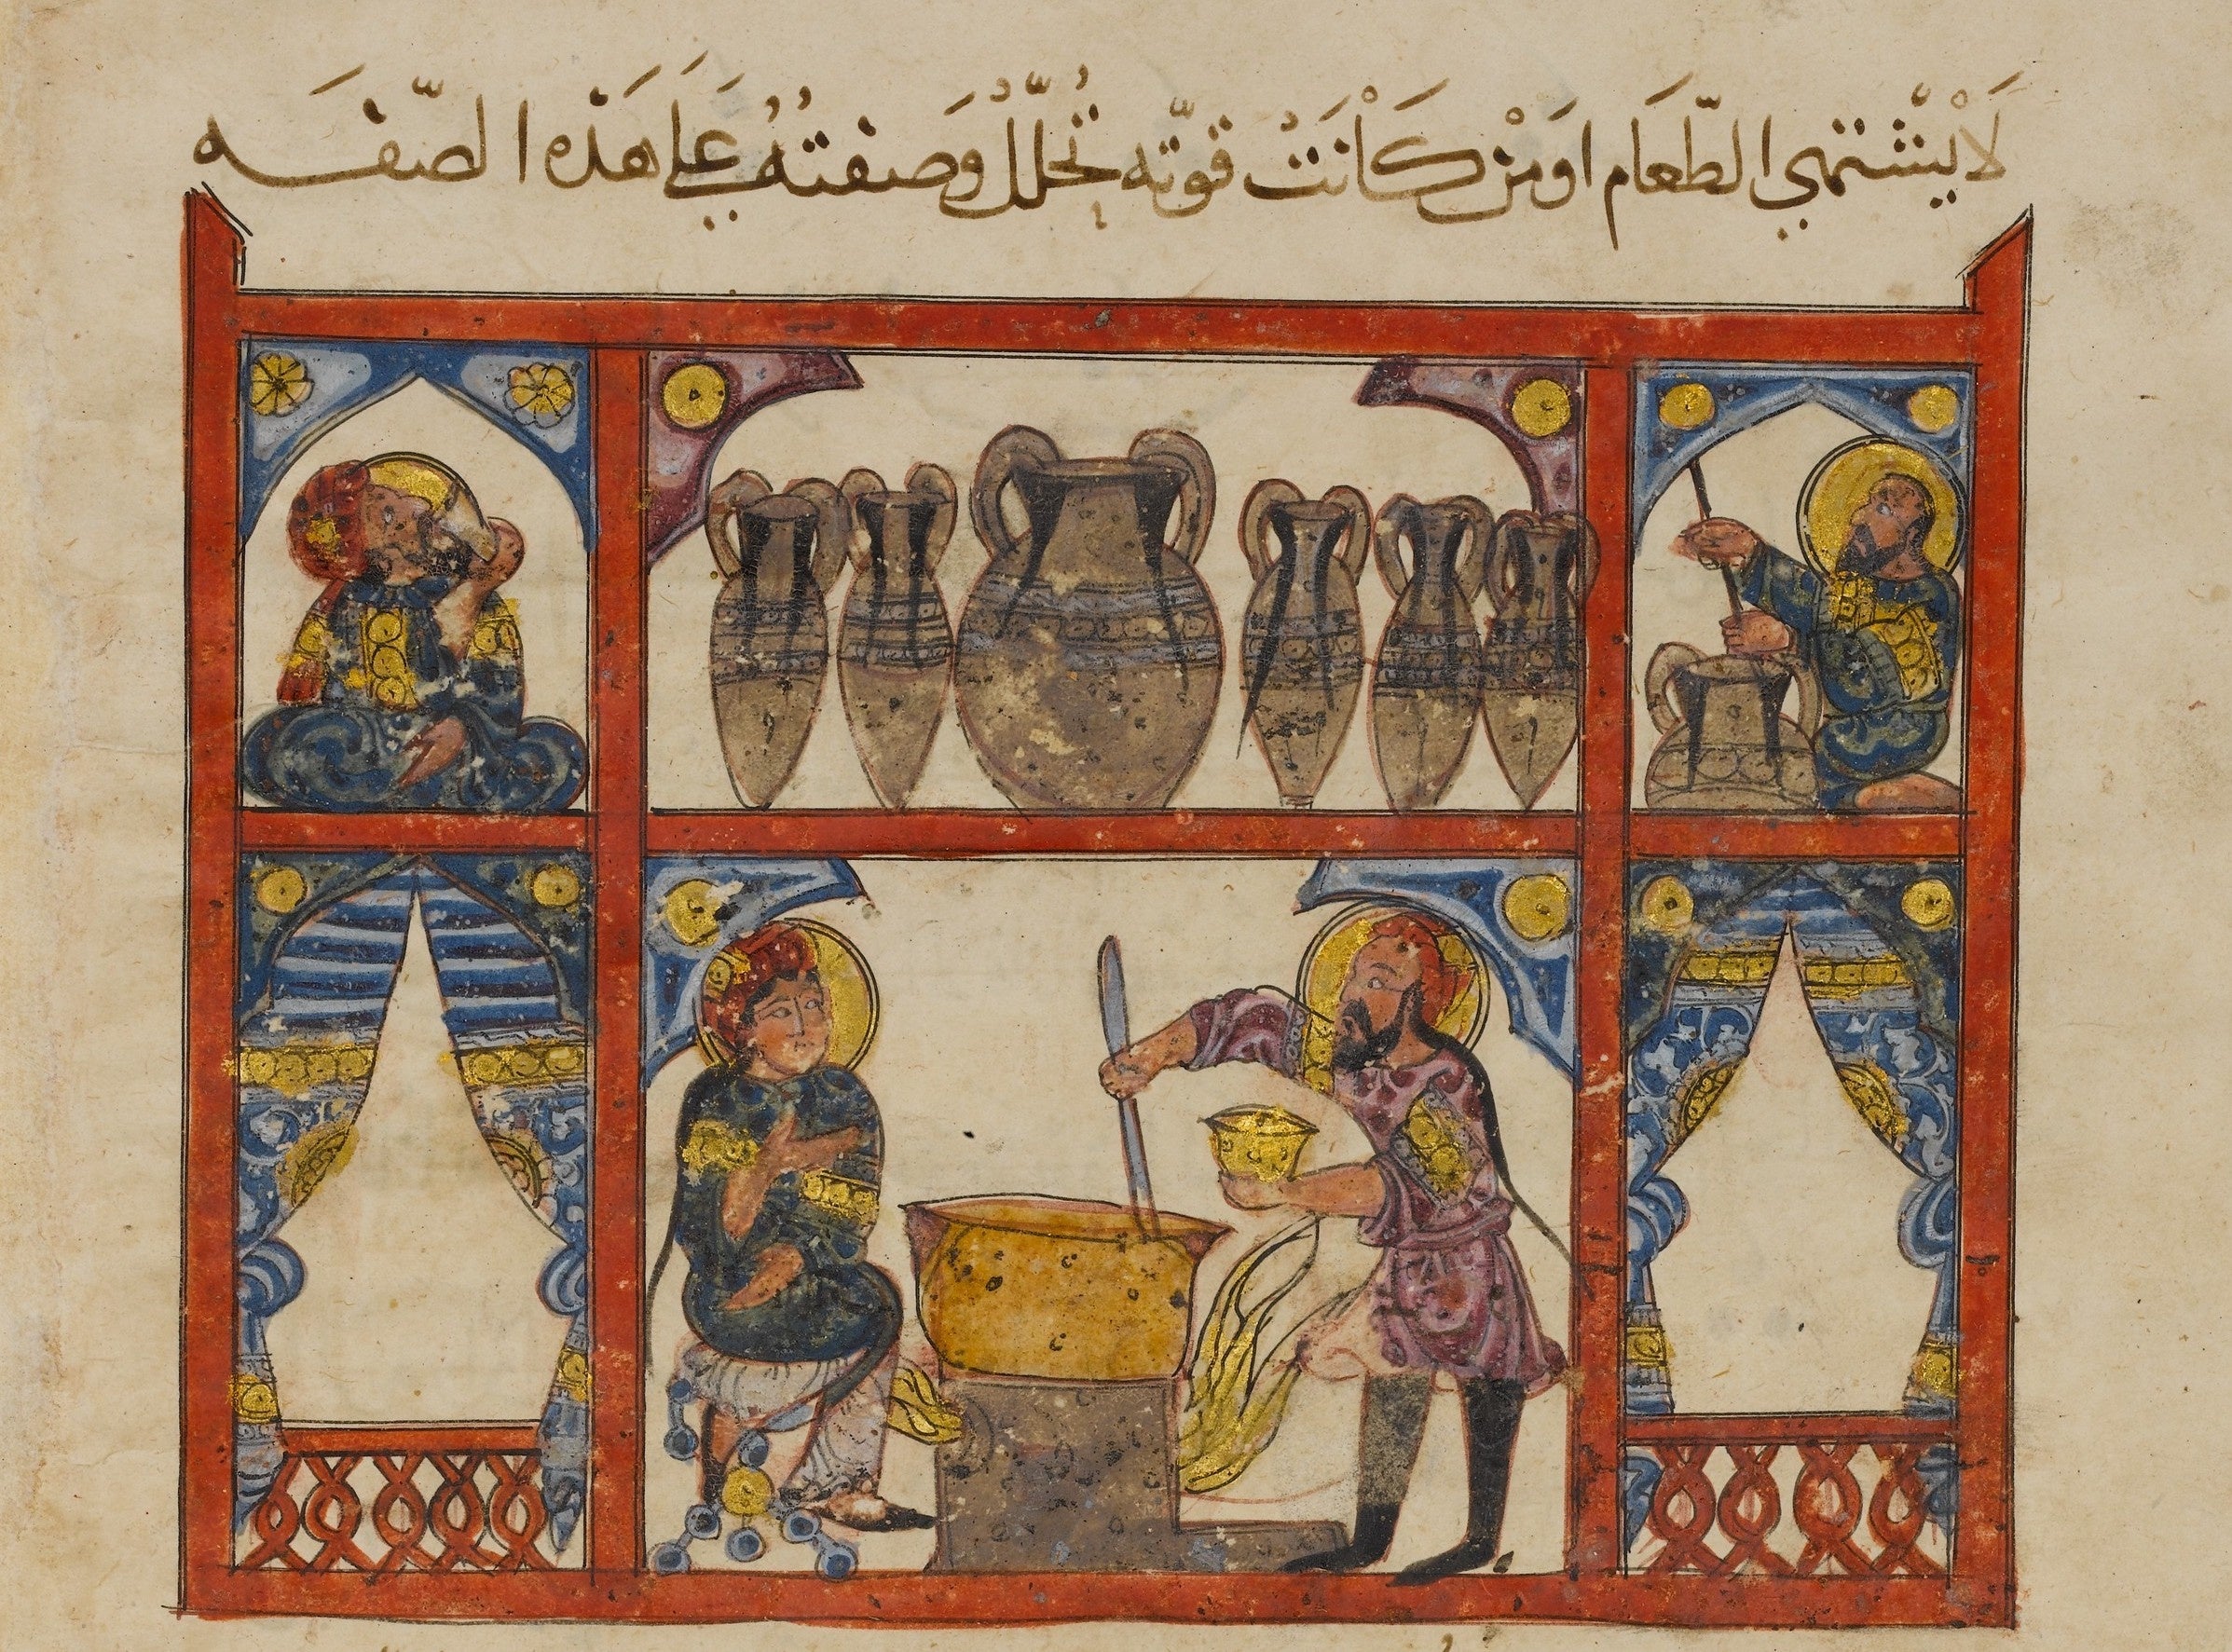 لَا يَشْتَهِي الطَّعَام اوَمَنْ كَانَتْ قوّته تُحلّلُ وَصفتهُ عَلَى هَذه الصّفَه